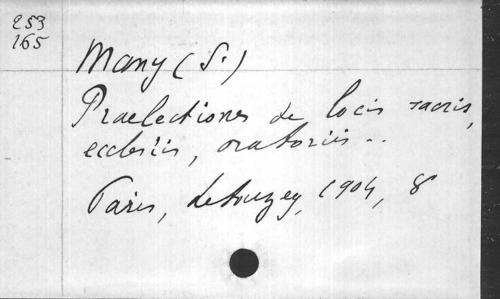 253
165
Many (S.)
Praelectiones de locis sacris,
ecclesiis, oratoriis ..
Paris, Letouzey, 1904, 8